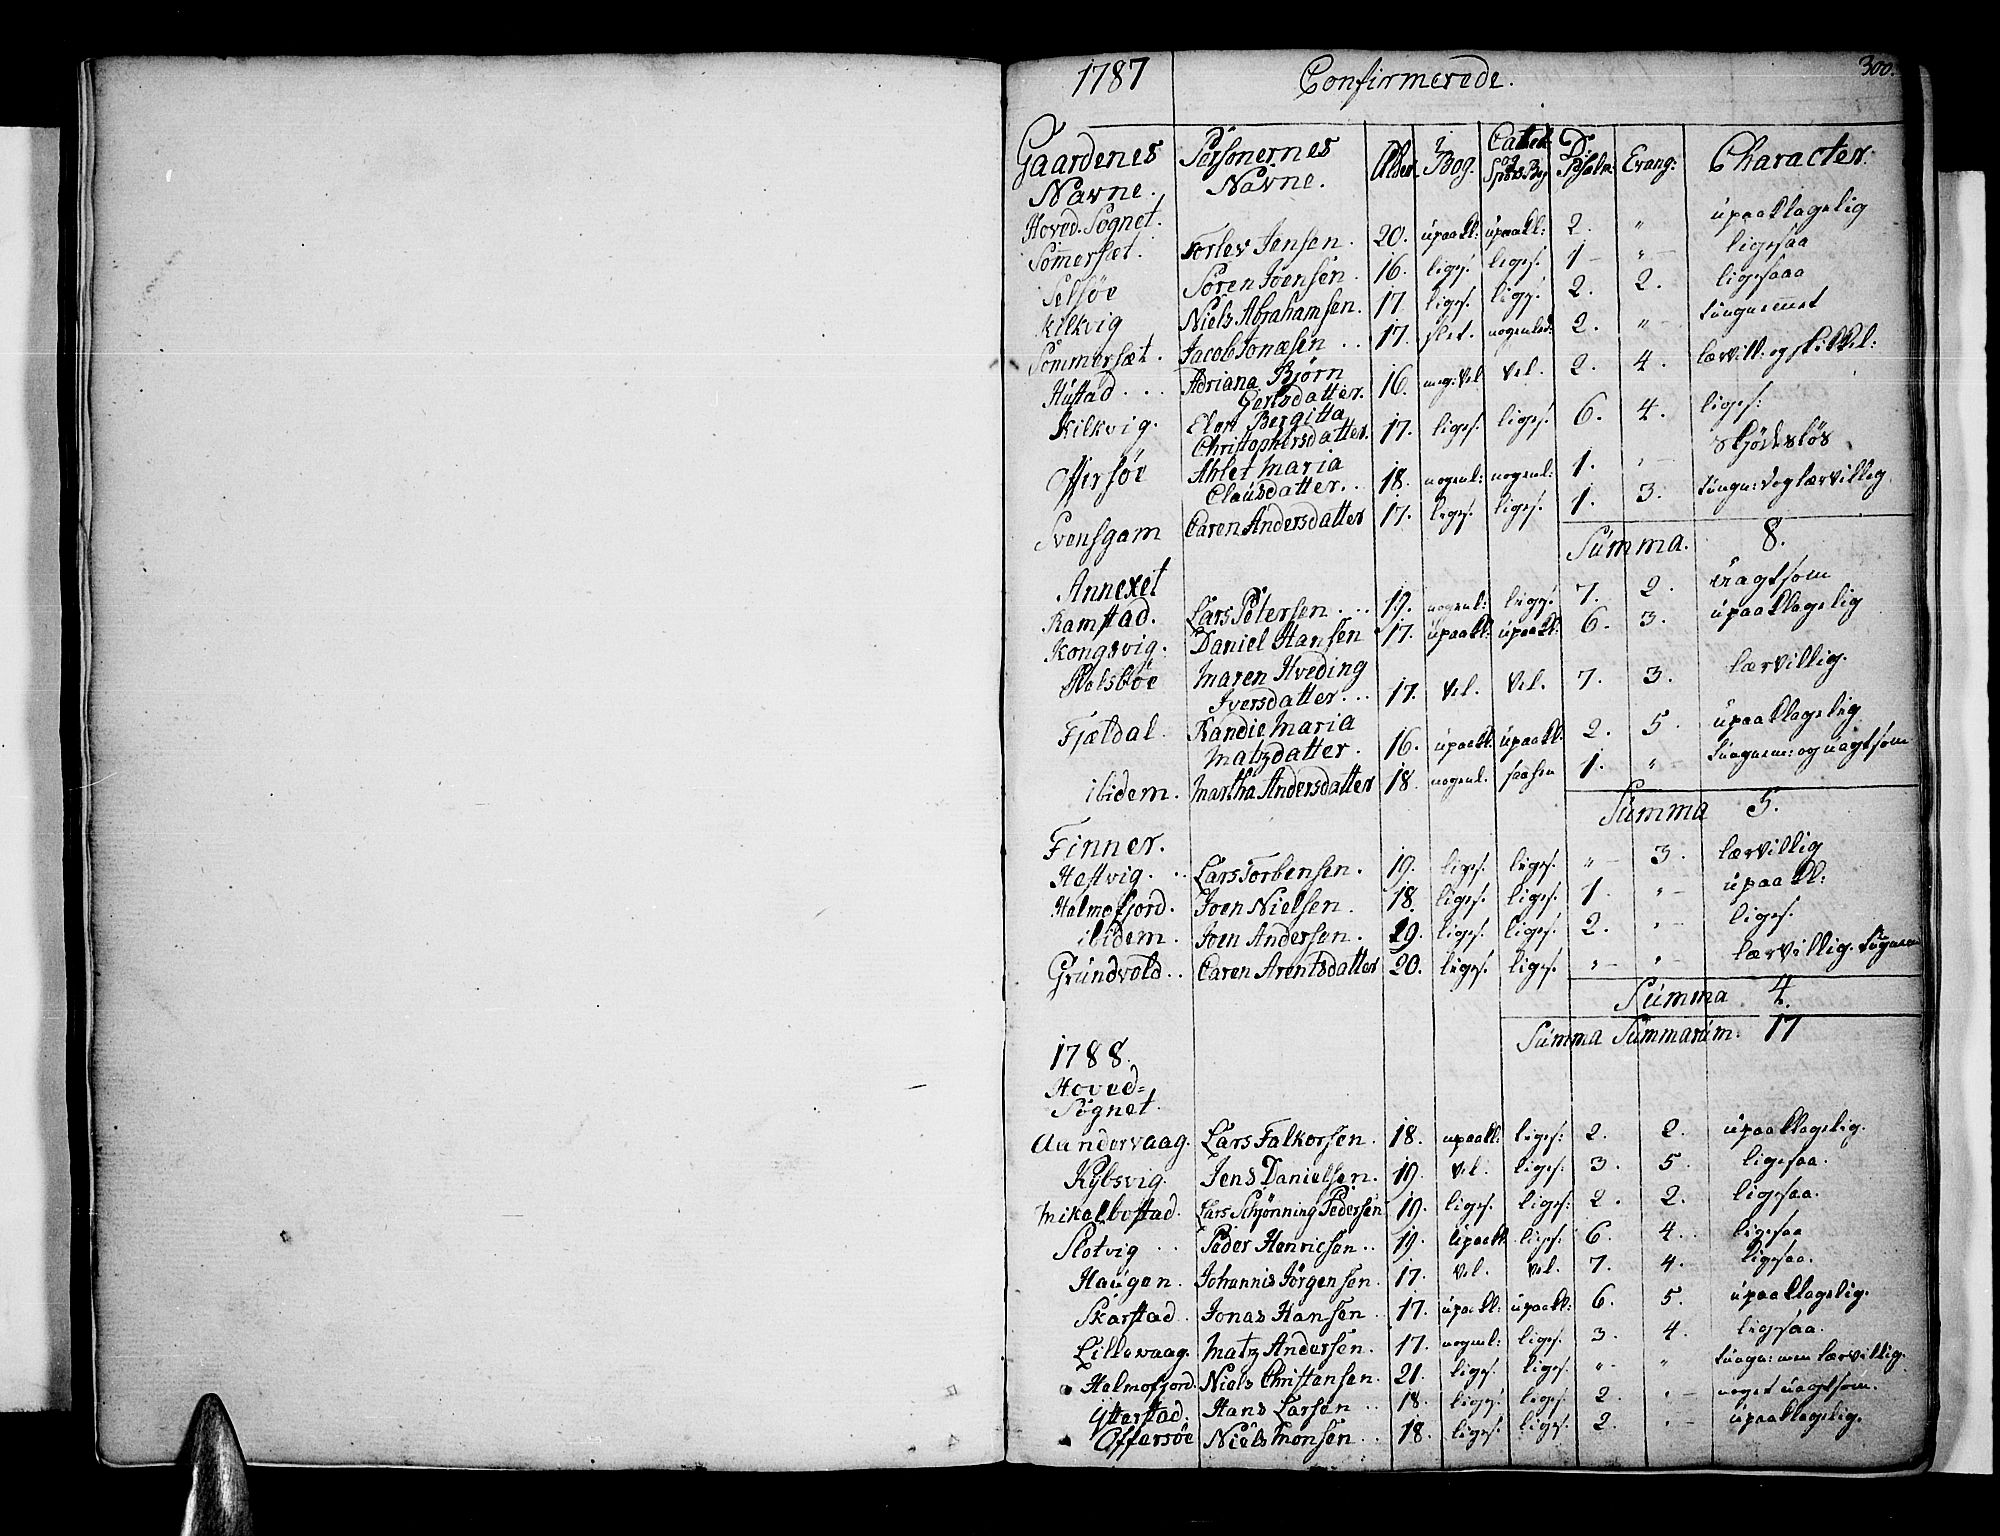 1787 Confirmerede. 300.
Gaardenes Navne. Personernes Navne. Alder. i Bog. Catech: og Spörs. Bog D. Psalm: Evang: Character.
Hoved-Sognet.
Sömersæt. Torlev Jensen. 20. upaakl: upaakl: 2. " upaaklagelig
Selsöe Sören Joensen. 16. liges. liges. 1 - " - ligesaa
Kilkvig Niels Abrahamsen. 17. liges. liges. 2. 2. ligesaaa
Sömmersæt. Jacob Jonæsen .. 17. slet. nogenled: 2. " - tungnemet
Hustad ... Adriana Björn
Gertsdatter. 16. meg: vel vel. 2. 4. lærvill: og skikkel:
Kilkvig. Elen Bergitta
Christophersdatter. 17. liges. liges. 6. 4. liges:
Offersöe Ablet Maria
Clausdatter .. 18. nogenl: nogenl: 1. " skjödeslös
Svensgam Caren Andersdatter 17. liges. liges. 1. 3. tungn: og lærvillig.
Summa. 8.
Annexet
Ramstad. Lars Petersen ... 19. nogenl: liges. 7. 2. uagtsom
Kongsvig. Daniel Hansen 17. upaakl: upaakl: 6. 3. upaaklagelig
Rolsböe Maren Hveding
Iversdatter ... 17. vel. vel. 7. 3. lærvillig.
Fjeldal. Randie Maria
Matzdatter. 16. upaakl: upaakl: 2. 5. upaaklagelig
ibidem. Martha Andersdatter 18. nogenl. 1. " tungnem: og uagtsom
Summa 5.
Finner.
Hestvig. .. Lars Torbensen. 19. liges. liges. " - 3. lærvillig
Halmofjord. Joen Nielsen. 18. liges. liges. 1. " - upaakl:
ibidem. Joen Andersen. 29. liges. liges. 2. " - liges.
Grundvold .. Caren Arentsdatter 20. liges. liges. " - " - lærvillig.
Summa. 4.
Summa Summarum. 17
1788.
Hoved=
Sognet.
Aundervaag. Lars Falkorsen. 18. upaakl: liges: 2. 2. upaaklagelig.
Kybsvig. Jens Danielsen. 19. vel. liges: 3. 5. ligesaa.
Mikalbostad. Lars Schjönning Pedersen 19. liges. liges: 2. 2. ligesaa.
Slotvig .. Peder Henricsen .. 19. upaakl: liges: 6. 4. ligesaa
Haugen. Johannis Jörgensen. 17. vel. vel. 7. 4. ligesaa.
Skarstad. Jonas Hansen .. 17. upaakl: upaakl: 6. 5. upaaklagelig.
Lillevaag. Matz Andersen. 17. nogenl: liges. 3. 4. ligesaa.
Halmofjord. Niels Christensen. 21. liges. liges. " " tungn: men lærvillig.
Ytterstad. Hans Larsen .. 18. liges. liges. 2. " - noget uagtsom.
Offersöe Niels Monsen .. 18. liges. liges. 2. " - upaaklagelig.